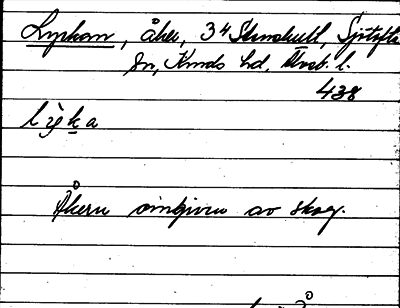 Lyckan, åker, 3⁴ Stenskull, Sjötofta
sn, Kinds hd. Älvsb. l.
438
lỳka
Åkern omgiven av skog.